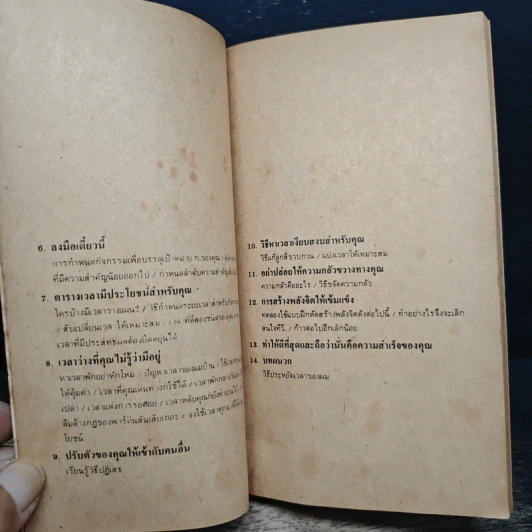 6. ลงมือเดี๋ยวนี้
การกำหนดกิจกรรมเพื่อบรรลุเป้าหมาย ก.ของคุณ /
ที่มีความสำคัญน้อยออกไป / กำหนดลำดับความสำคัญ
7. ตารางเวลามีประโยชน์สำหรับคุณ
ใครบ้างมีเวลาวางแผน? / วิธีกำหนดระยะเวลาสำหรับกิจกรรม
/ สับเปลี่ยนเวลาให้เหมาะสม / เวลาที่ดีสองชนิดของคุณ
เวลาที่มีประสิทธิผลต้องยืดหยุ่นได้
8. เวลาว่างที่คุณไม่รู้ว่ามีอยู่
หาเวลาพักอย่าหักโหม / ปัญหาเวลาของแม่บ้าน / ใช้เวลา
ให้คุ้มค่า / เวลาที่คุณเดินทางก็ใช้ได้ / เวลาพักกลางวัน
เปล่า / เวลาแห่งการรอคอย / เวลาหลับคุณก็ยังทำงานได้
ล้มล้างกฎของพาร์กินสันเสียเถอะ / จงใช้เวลาทุก
โยชน์
9. ปรับตัวของคุณให้เข้ากับคนอื่น
เรียนรู้วิธีปฏิเสธ
10. วิธีหาเวลาเงียบสงบสำหรับคุณ
วิธีแก้ลูกสีรอบกวน / แบ่งเวลาให้เหมาะสม
11. อย่าปล่อยให้ความกลัวขวางทางคุณ
ความกลัวคืออะไร / วิธีขจัดความกลัว
12. การสร้างพลังจิตให้เข้มแข็ง
ทดลองใช้แบบฝึกหัดสร้างพลังจิตดังต่อไปนี้ / ทำอย่างไรจึงจะเลิก
สนใจทีวี. / ก้าวต่อไปอีกเล็กน้อย
13. ทำให้ดีที่สุดและถือว่านั่นคือความสำเร็จของคุณ
14. บทผนวก
วิธีประหยัดเวลาของผม